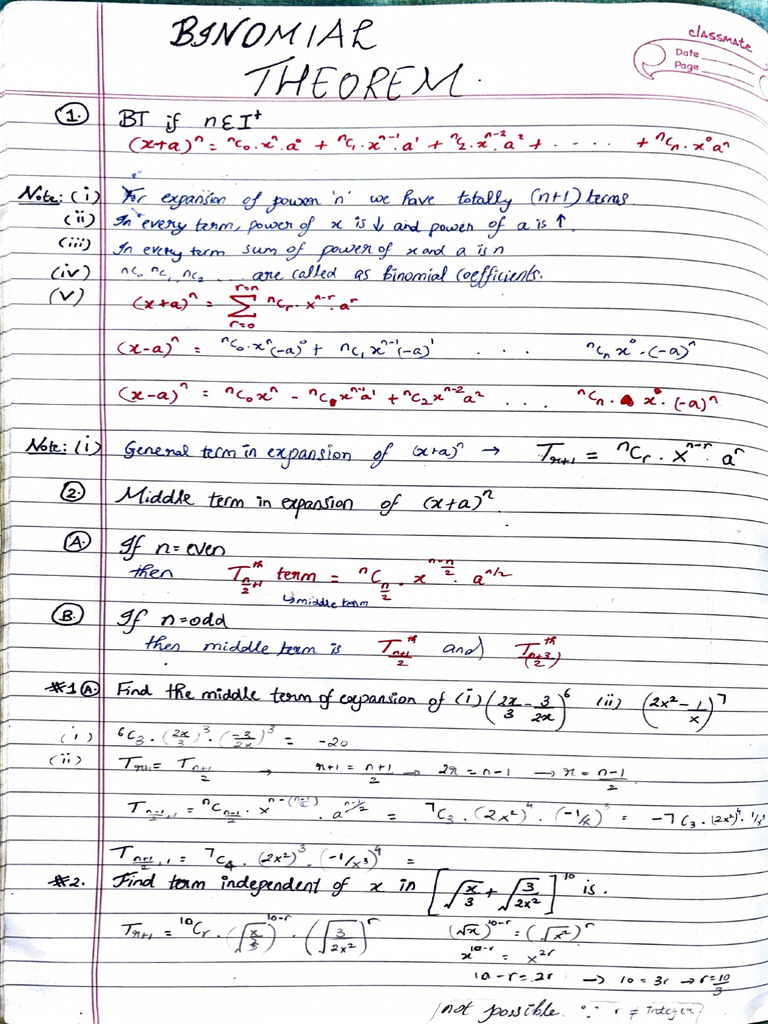 BINOMIAL
THEOREM.
classmate
Date
Page
1. BT if n ε I⁺
(x+a)ⁿ = ⁿC₀·xⁿ·a⁰ + ⁿC₁·xⁿ⁻¹·a¹ + ⁿC₂·xⁿ⁻²·a² + ..... + ⁿCₙ·x⁰aⁿ
Note: (i) For expansion of power 'n' we have totally (n+1) terms
(ii) In every term, power of x is ↓ and power of a is ↑.
(iii) In every term sum of power of x and a is n
(iv) ⁿC₀ ⁿC₁, ⁿC₂ ... are called as binomial coefficients.
(V) (x+a)ⁿ = Σ_{r=0}^{r=n} ⁿCᵣ·xⁿ⁻ʳ·aʳ
(x-a)ⁿ = ⁿC₀·xⁿ(-a)⁰ + ⁿC₁xⁿ⁻¹(-a)¹ ... ⁿCₙx⁰·(-a)ⁿ
(x-a)ⁿ = ⁿC₀xⁿ - ⁿC xⁿ⁻¹a¹ + ⁿC₂xⁿ⁻²a² ... ⁿCₙ· x⁰·(-a)ⁿ
Note: (i) General term in expansion of (x+a)ⁿ → Tᵣ₊₁ = ⁿCᵣ·xⁿ⁻ʳ·aʳ
2. Middle term in expansion of (x+a)ⁿ
A. If n = even
then T_{n/2+1}^{th} term = ⁿC_{n/2}·x^{n-n/2}·a^{n/2}
↳ middle term
B. If n = odd
then middle term is T_{(n+1)/2}^{th} and T_{(n+3)/2}^{th}
#1 A. Find the middle term of expansion of (i) (2x/3 - 3/2x)⁶ (ii) (2x² - 1/x)⁷
(i) ⁶C₃·(2x/3)³·(-3/2x)³ = -20
(ii) Tᵣ₊₁ = T_{(n+1)/2} → r+1 = (n+1)/2 → 2r = n-1 → r = (n-1)/2
T_{(n-1)/2+1} = ⁿC_{(n-1)/2}·x^{n-(n-1)/2}·a^{(n-1)/2} = ⁷C₃·(2x²)⁴·(-1/x)³ = -7C₃·(2x²)⁴·1/x³
T_{(n+1)/2+1} = ⁷C₄·(2x²)³·(-1/x³)⁴ =
#2. Find term independent of x in [√(x/3) + √(3/2x²)]¹⁰ is.
Tᵣ₊₁ = ¹⁰Cᵣ·(√(x/3))¹⁰⁻ʳ·(√(3/2x²))ʳ (√x)¹⁰⁻ʳ = (√x²)ʳ
x¹⁰⁻ʳ = x²ʳ
10-r = 2r → 10 = 3r → r = 10/3
not possible ∵ r ≠ integer